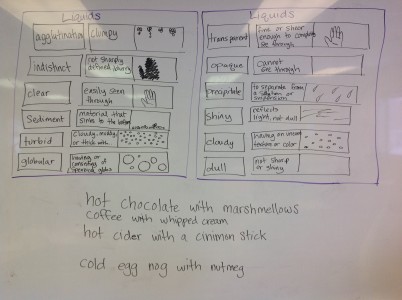 Liquids
agglutinative clumpy
indistinct not sharply defined, blurry
clear easily seen through
Sediment material that sinks to the bottom
turbid cloudy, muddy, or thick with
globular having or consisting of spherical globs
Liquids
transparent fine or shear enough to completely see through
opaque cannot see through
precipitate to separate from a solution or suspension
shiny reflects light, not dull
cloudy having an uneven texture or color
dull not sharp or shiny
hot chocolate with marshmellows
coffee with whipped cream
hot cider with a cinimon stick
cold egg nog with nutmeg